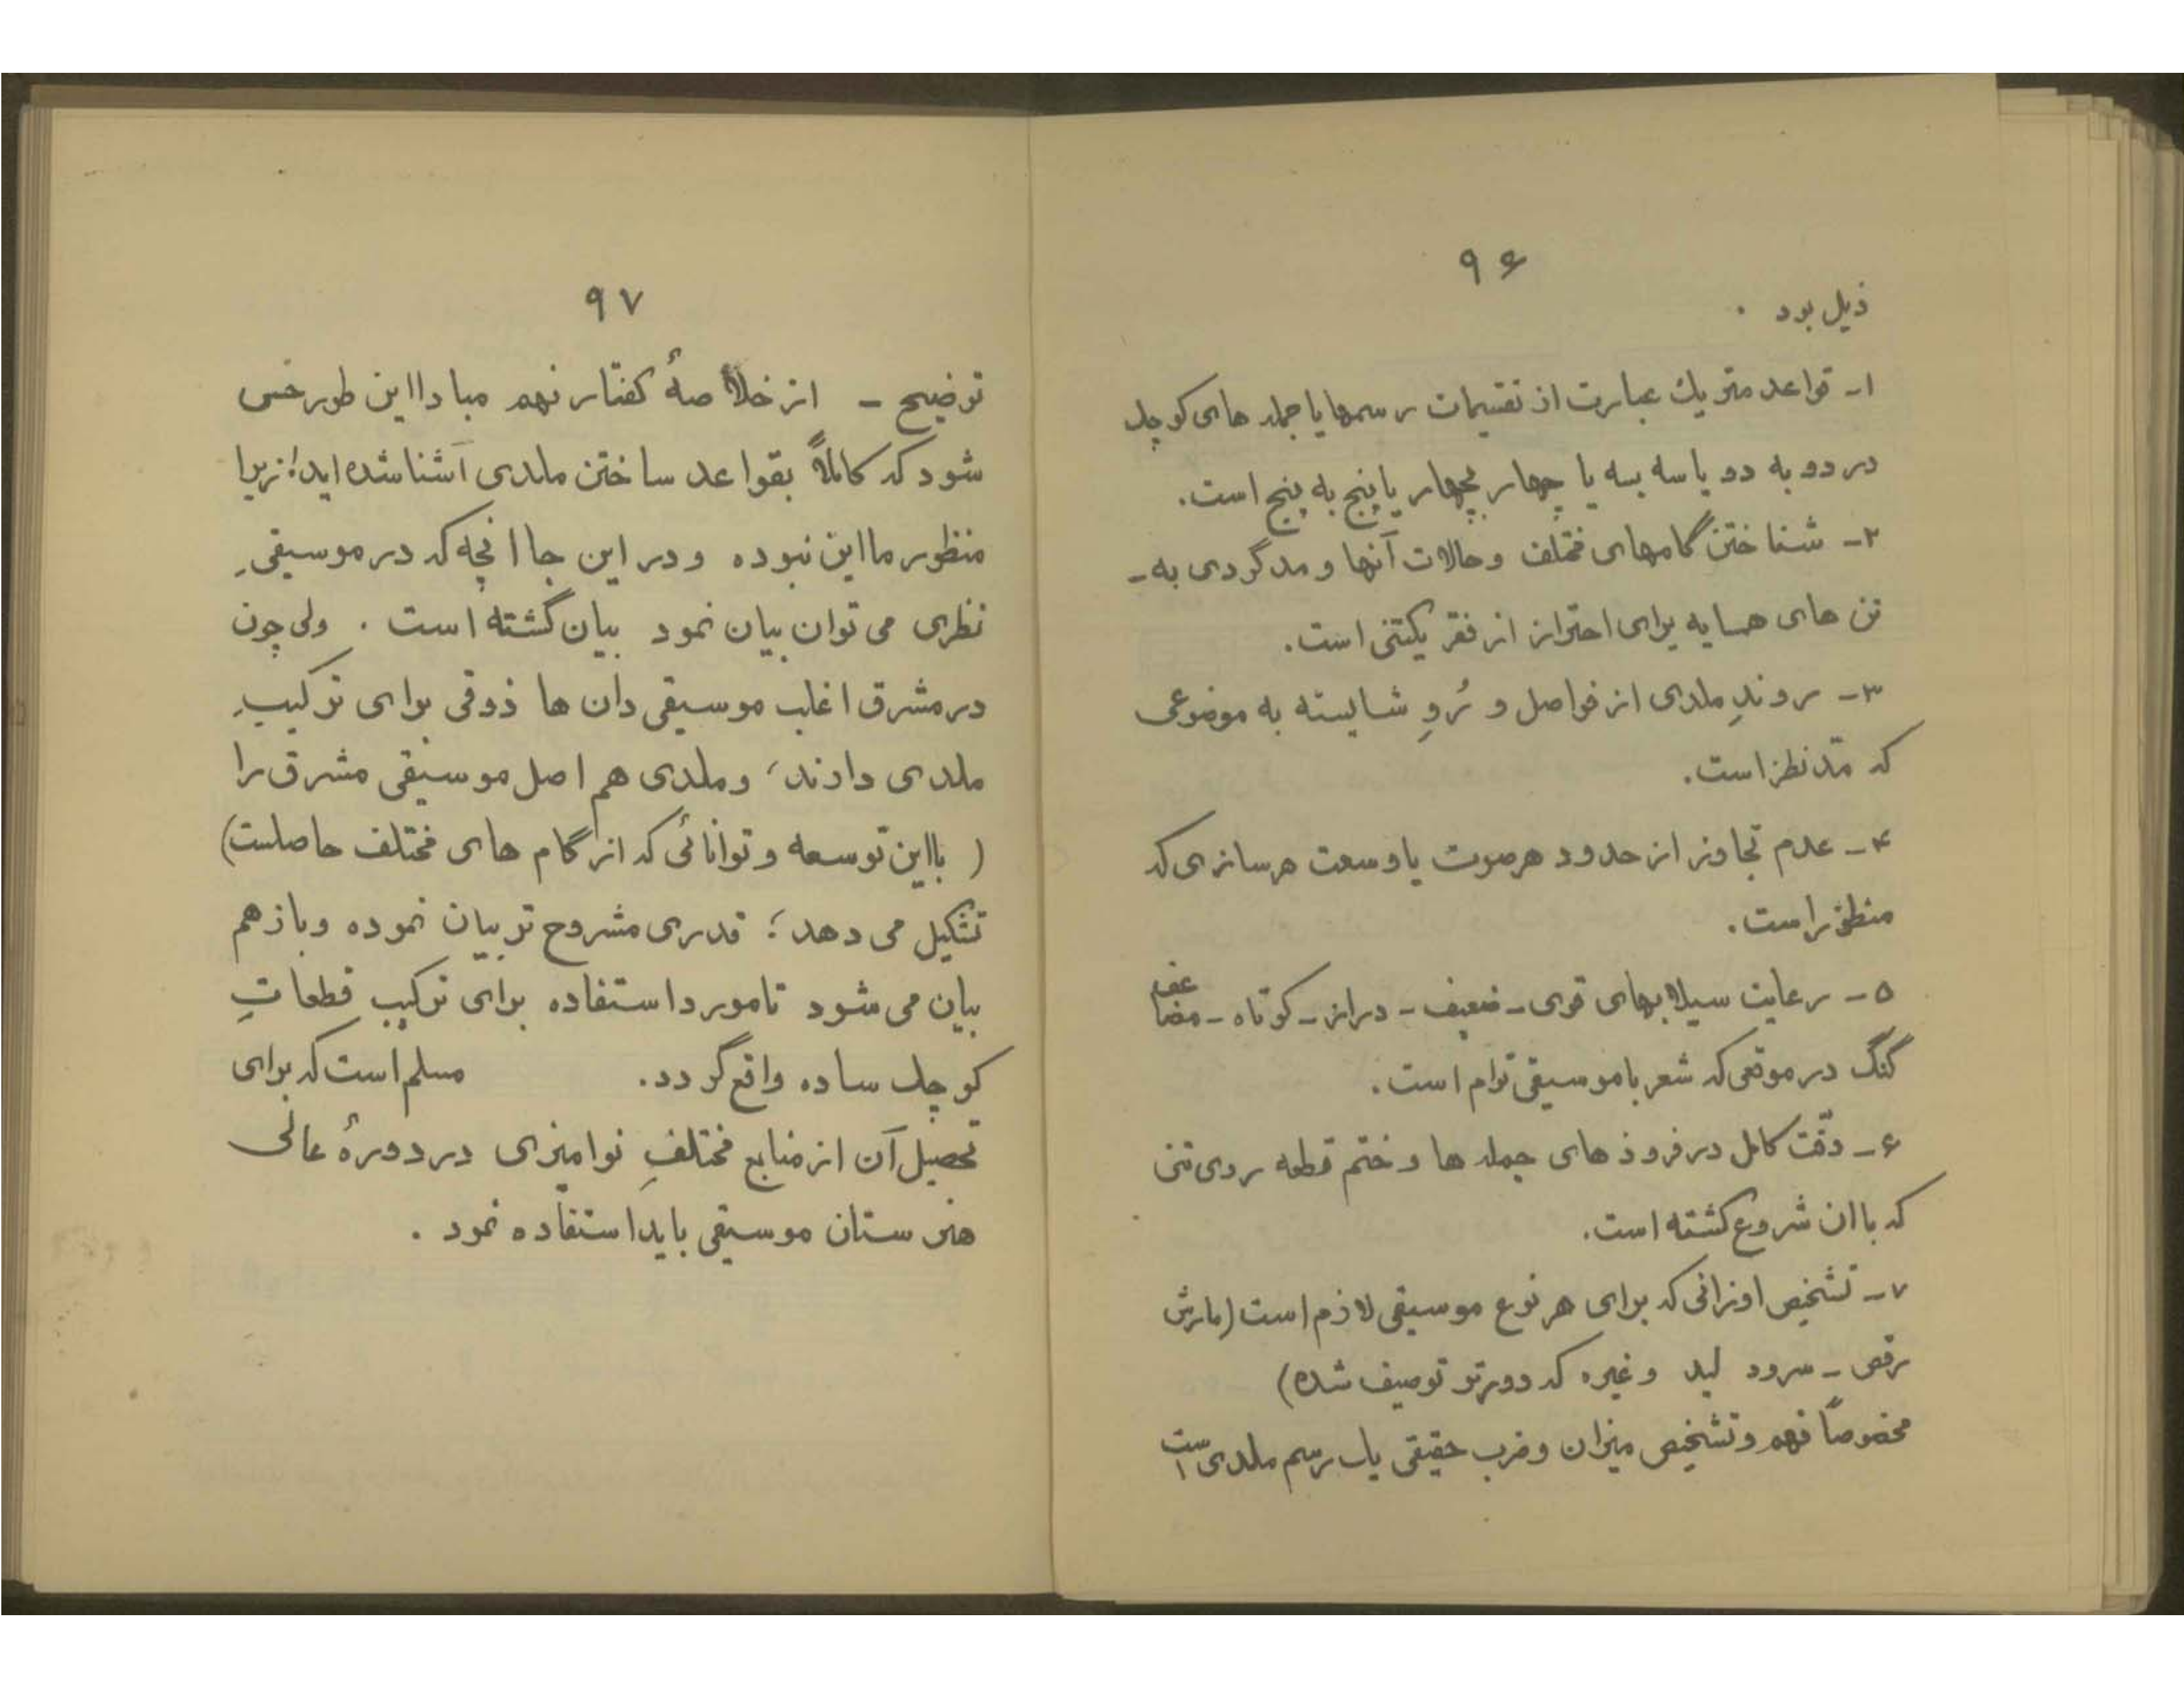 ۹۶
ذیل بود .
۱ـ قواعد متریك عبارت از تقسیمات رسمها یا جمله های کوچك
در دو به دو یا سه بسه یا چهار بچهار یا پنج به پنج است.
۲ـ شناختن گامهای مختلف و حالات آنها و مدگردی به ـ
تن های همسایه برای احتراز از فقر یکتنی است.
۳ـ روندِ ملدی از فواصل و رُوِ شایسته به موضوعی
که مدّ نظر است.
۴ـ عدم تجاوز از حدود هر صوت یا وسعت هر سازی که
منظور است.
۵ـ رعایت سیلابهای قوی ـ ضعیف ـ دراز ـ کوتاه ـ مضاعف
گنگ در موقعی که شعر با موسیقی توام است.
۶ـ دقّت کامل در فرود های جمله ها و ختم قطعه روی تنی
که با ان شروع گشته است.
۷ـ تشخیص اوزانی که برای هر نوع موسیقی لازم است (مارش
رقص ـ سرود لید و غیره که دورتر توصیف شده)
مخصوصاً فهم و تشخیص میزان و ضرب حقیقی یك رسم ملدی است
۹۷
توضیح ـ از خلاصهٔ گفتار نهم مبادا این طور حس
شود که کاملاً بقواعد ساختن ملدی آشنا شده اید؛ زیرا
منظور ما این نبوده و در این جا انچه که در موسیقیِ
نظری می توان بیان نمود بیان گشته است . ولی چون
در مشرق اغلب موسیقی دان ها ذوقی برای ترکیبِ
ملدی دارند، و ملدی هم اصل موسیقی مشرق را
( با این توسعه و توانائی که از گام های مختلف حاصلست)
تشکیل می دهد؛ قدری مشروح تر بیان نموده و باز هم
بیان می شود تا مورد استفاده برای ترکیب قطعاتِ
کوچك ساده واقع گردد. مسلم است که برای
تحصیل آن از منابع مختلفِ نوامیزی در دورهٔ عالی
هنرستان موسیقی باید استفاده نمود .